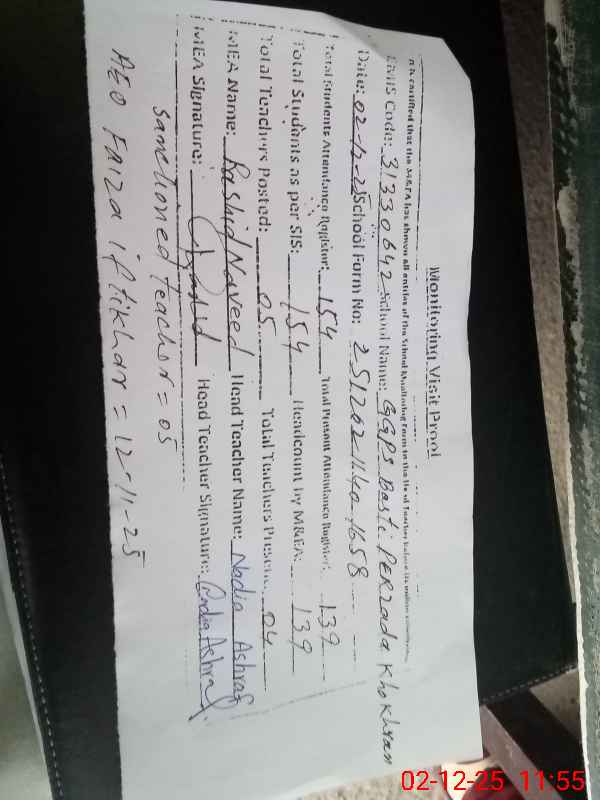 Monitoring Visit Proof
It is certified that the M&EA has shown all entries of the School Monitoring Form to the Head Teacher before its online
EMIS Code: 31330642 School Name: GGPS Basti PERzada Khokhran
Date: 02-12-25 School Form No: 251202-1140-1658
Total Students Attendance Register: 154 Total Present Attendance Register: 139
Total Students as per SIS: 154 Headcount by M&EA: 139
Total Teachers Posted: 05 Total Teachers Present: 04
MEA Name: Rashid Naveed Head Teacher Name: Nadia Ashraf
MEA Signature: Rashid Head Teacher Signature: Nadia Ashraf
Sanctioned teacher = 05
AEO FAIZA iftikhar = 12-11-25
02-12-25 11:55